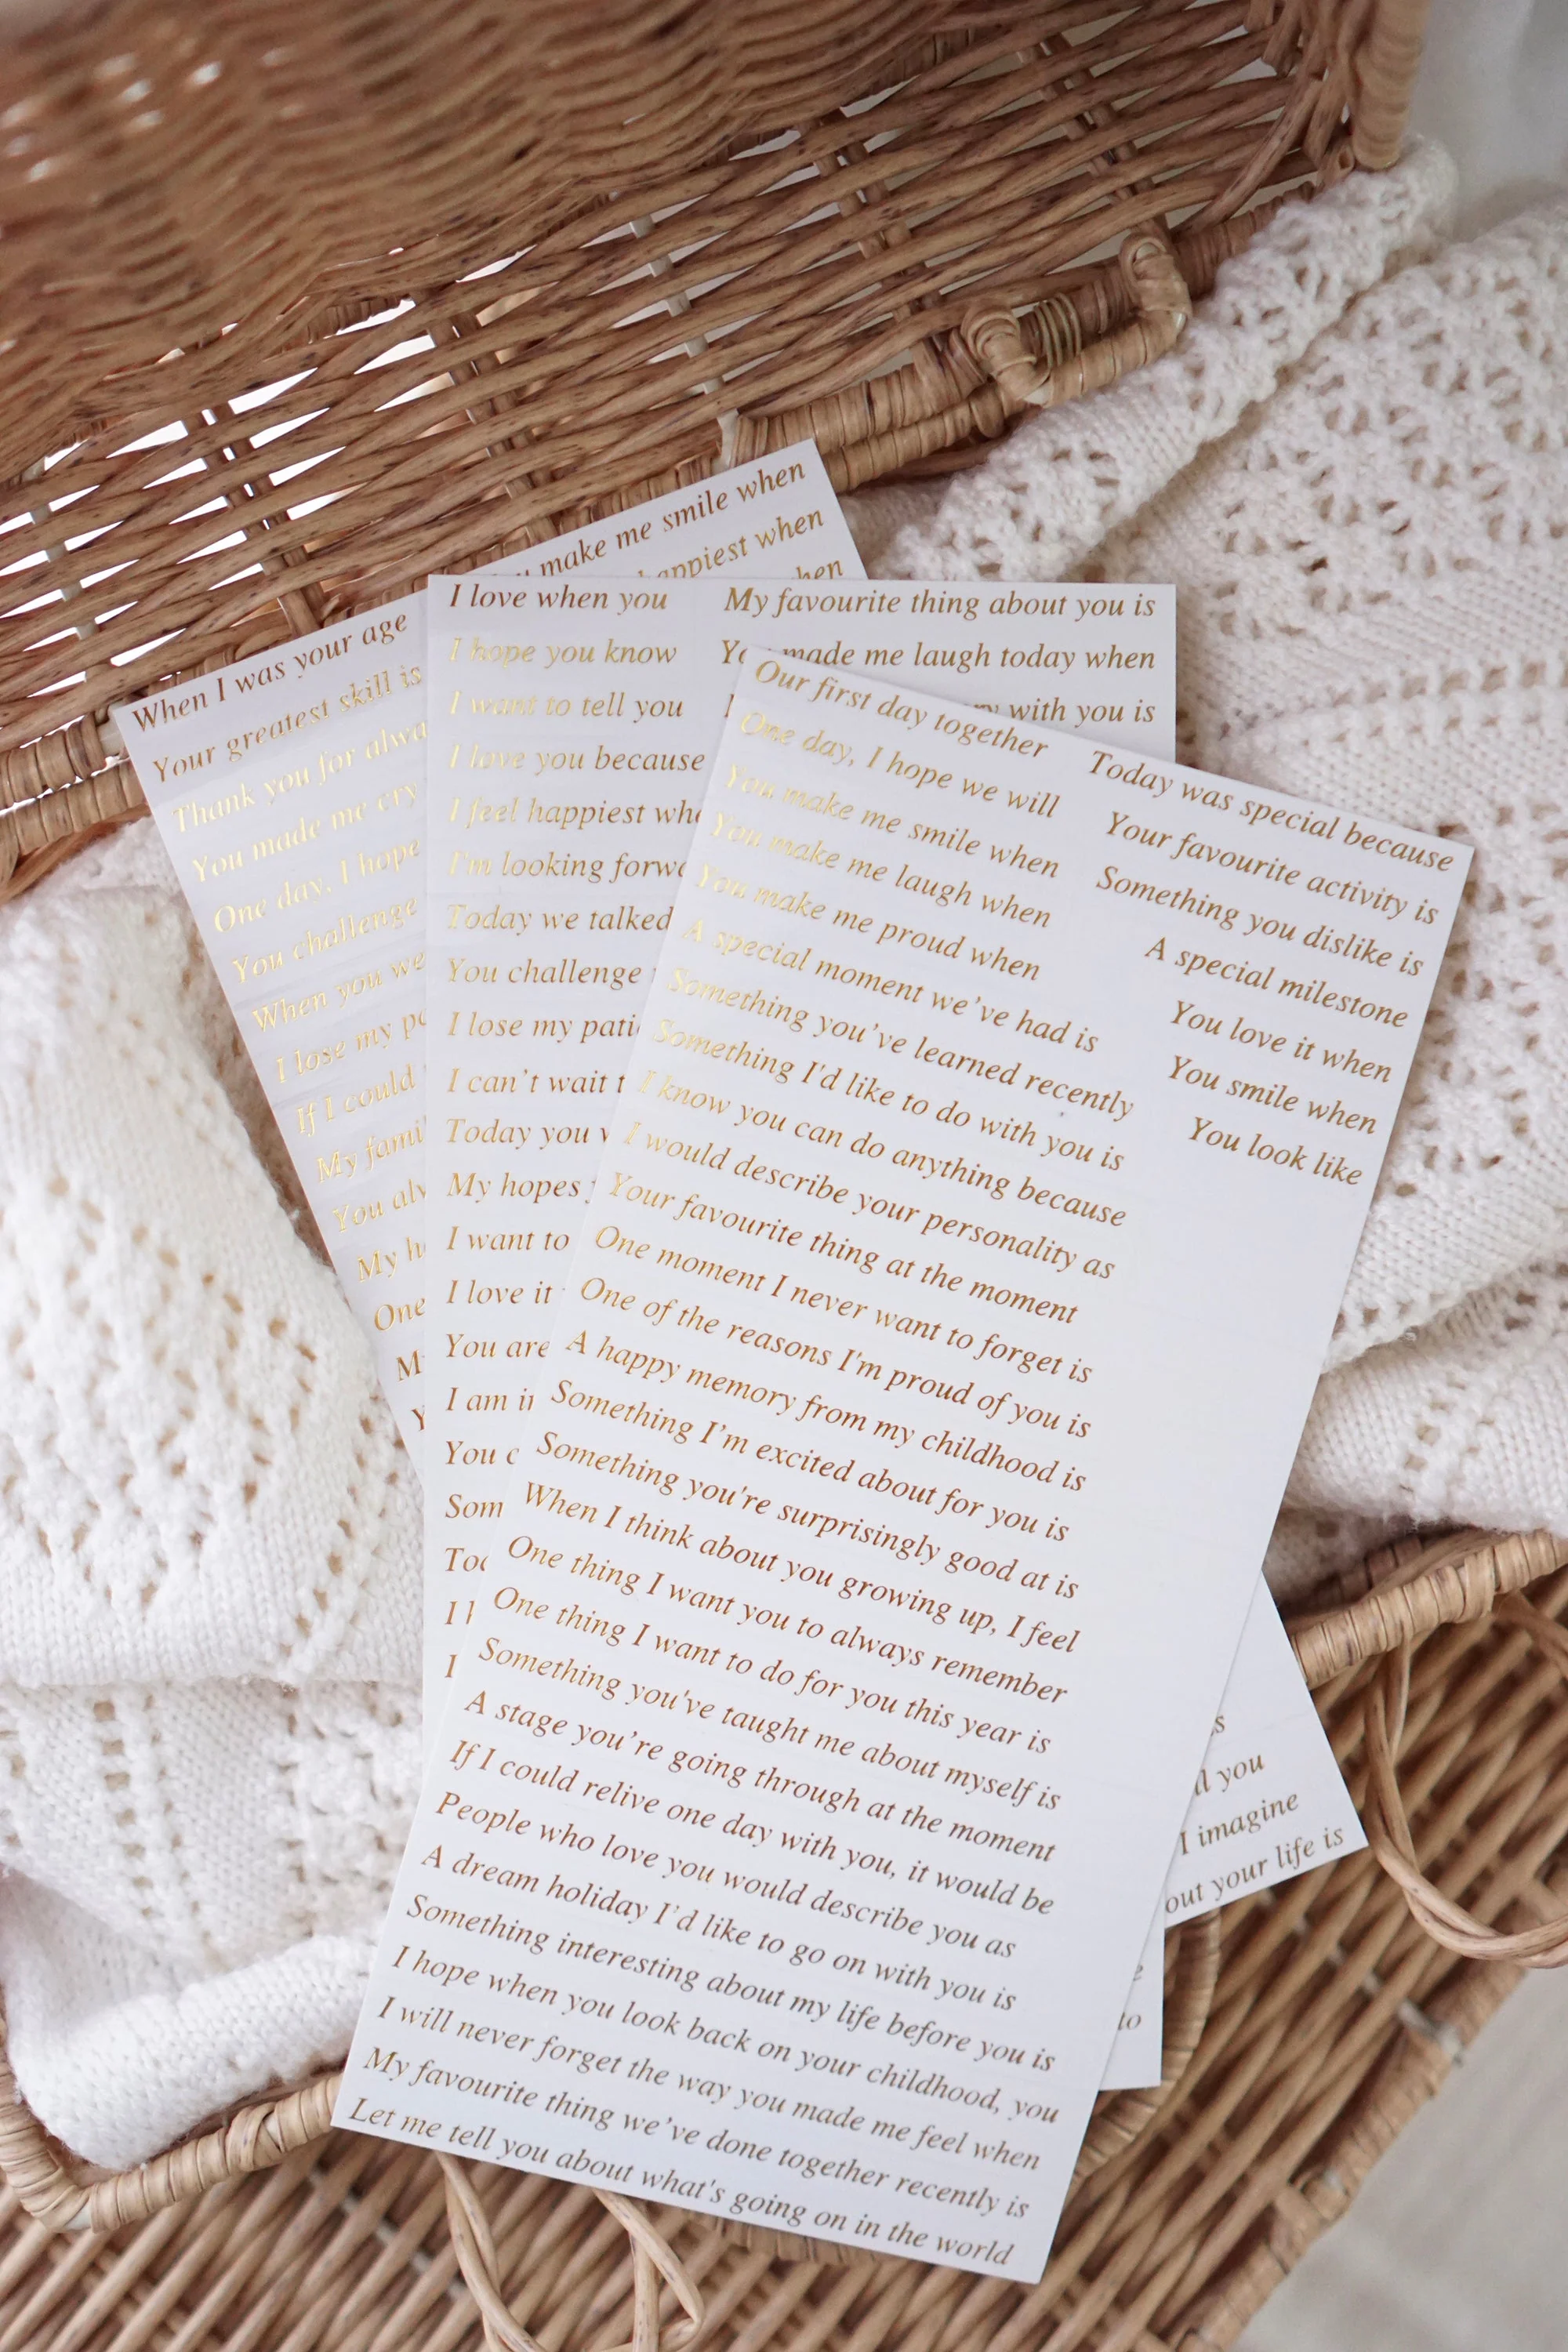 When I was your age
Your greatest skill is
Thank you for
You made me cry
One day, I hope
You challenge
When you
I lose my
If I could
My
You
My
One
make me smile when
happiest when
I love when you
I hope you know
I want to tell you
I love you because
I feel happiest
I'm looking
Today we talked
You challenge
I lose my
I can't wait
Today you
My hopes
I want to
I love it
You are
I am
You
My favourite thing about you is
made me laugh today when
with you is
Our first day together
One day, I hope we will
You make me smile when
You make me laugh when
You make me proud when
A special moment we've had is
Something you've learned recently
Something I'd like to do with you is
I know you can do anything because
I would describe your personality as
Your favourite thing at the moment
One moment I never want to forget is
One of the reasons I'm proud of you is
A happy memory from my childhood is
Something I'm excited about for you is
Something you're surprisingly good at is
When I think about you growing up, I feel
One thing I want you to always remember
One thing I want to do for you this year is
Something you've taught me about myself is
A stage you're going through at the moment
If I could relive one day with you, it would be
People who love you would describe you as
A dream holiday I'd like to go on with you is
Something interesting about my life before you is
I hope when you look back on your childhood, you
I will never forget the way you made me feel when
My favourite thing we've done together recently is
Let me tell you about what's going on in the world
Today was special because
Your favourite activity is
Something you dislike is
A special milestone
You love it when
You smile when
You look like
you
I imagine
your life is